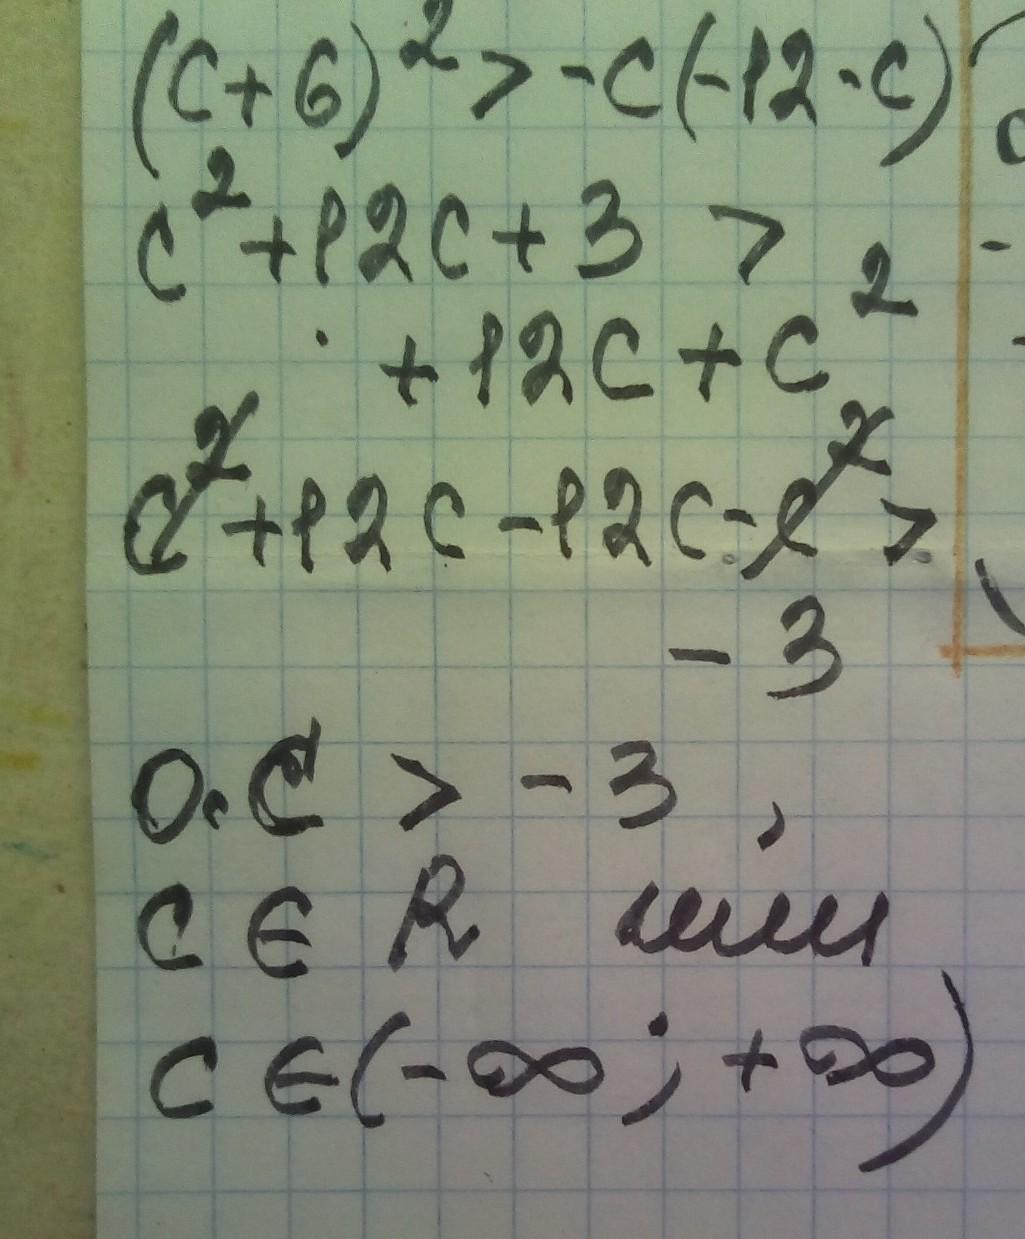 (c+6)² > -c(-12-c)
c²+12c+3 >
+12c+c²
c²+12c-12c-c² >
-3
0·c > -3,
c ∈ R или
c ∈ (-∞; +∞)